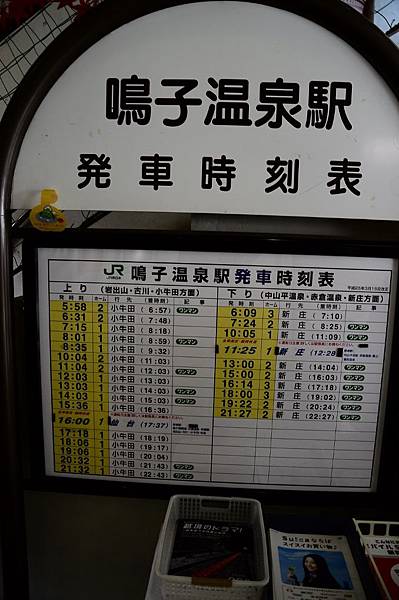 鳴子温泉駅
発車時刻表
JR 鳴子温泉駅発車時刻表
平成25年3月16日改正
上り (岩出山・古川・小牛田方面)
下り (中山平温泉・赤倉温泉・新庄方面)
発時刻 ホーム 行先 (着時刻) 記事
発時刻 ホーム 行先 (着時刻) 記事
5:58 2 小牛田 (6:57) ワンマン
6:31 2 小牛田 (7:48)
7:15 1 小牛田 (8:18)
8:01 1 小牛田 (8:59)
8:35 1 小牛田 (9:32)
10:04 2 小牛田 (11:03)
11:04 2 小牛田 (12:03)
13:04 1 小牛田 (14:03)
14:03 1 小牛田 (15:03)
15:36 1 小牛田 (16:36)
16:00 1 仙台 (17:37)
17:18 1 小牛田 (18:19)
18:06 1 小牛田 (19:17)
19:06 1 小牛田 (20:04)
20:32 1 小牛田 (21:43) ワンマン
21:32 1 小牛田 (22:43) ワンマン
6:09 3 新庄 (7:10)
7:24 2 新庄 (8:25) ワンマン
10:05 1 新庄 (11:09) ワンマン
11:25 1 新庄 (12:28)
13:00 2 新庄 (14:04) ワンマン
15:00 2 新庄 (16:03) ワンマン
16:14 3 新庄 (17:18) ワンマン
18:00 3 新庄 (19:02) ワンマン
19:22 2 新庄 (20:24) ワンマン
21:27 2 新庄 (22:27) ワンマン
越境のドラマ!
Suicaならば
スイスイお買い物♪